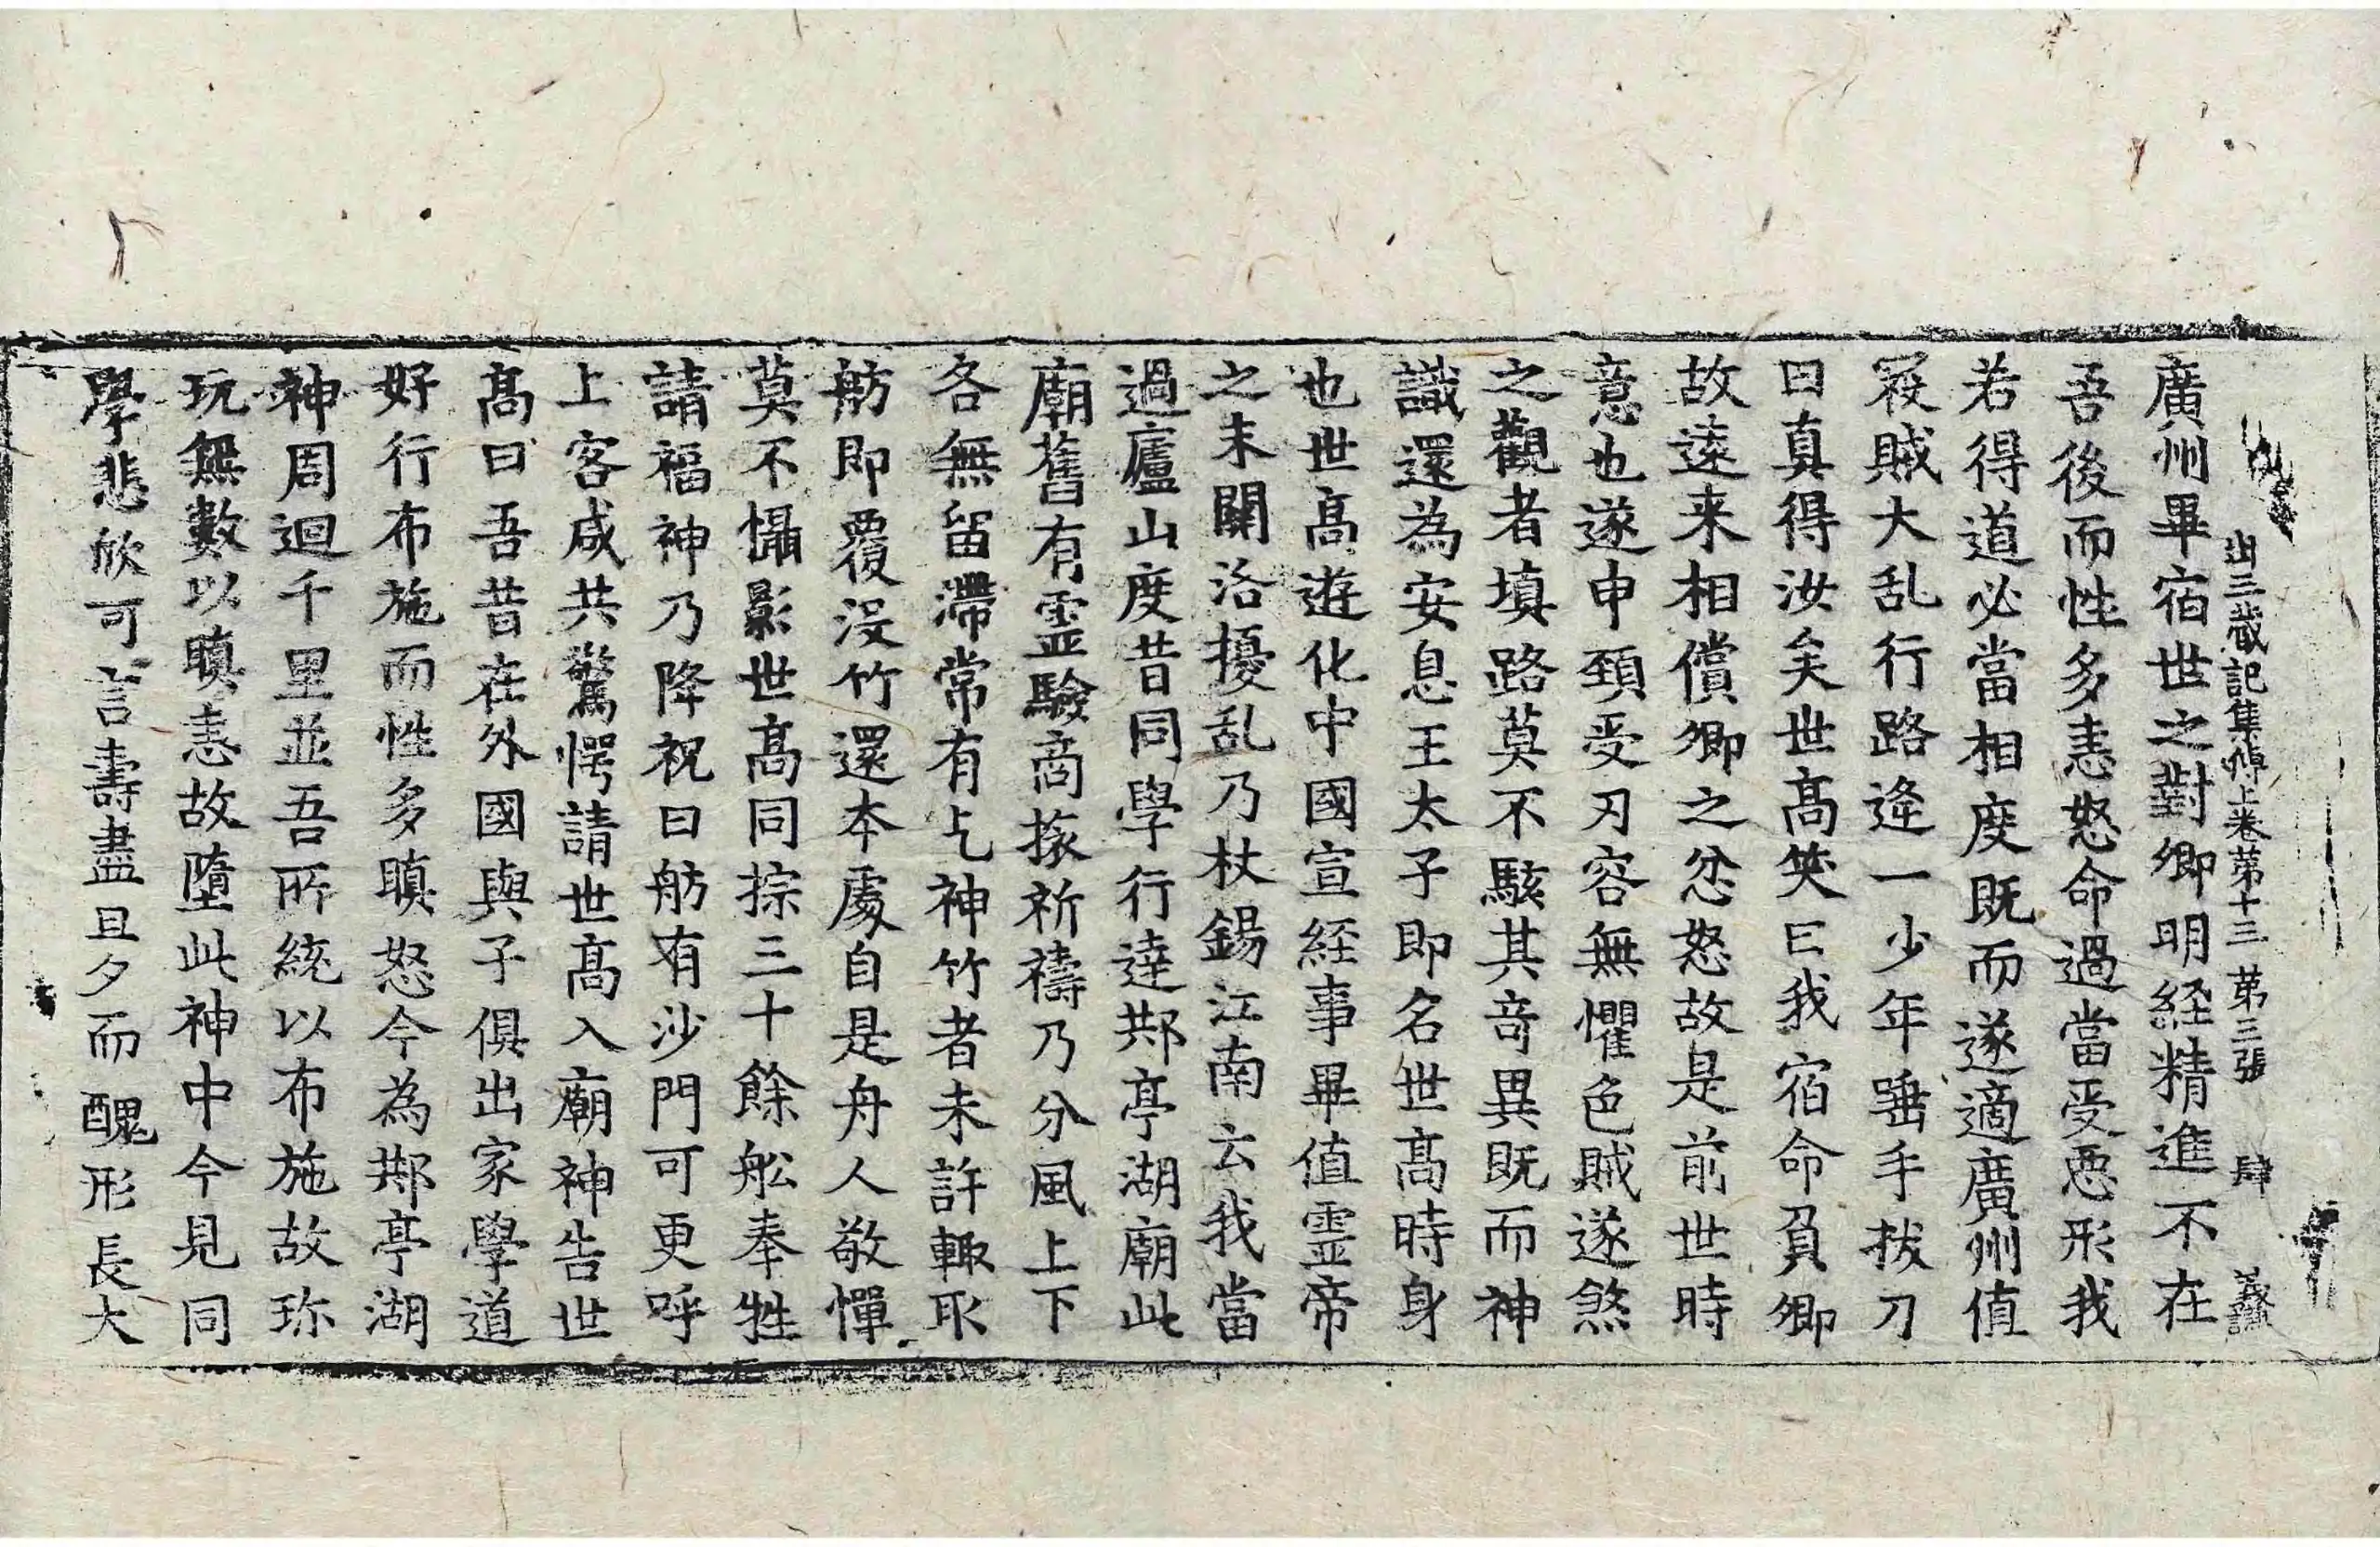 出三蔵記集傳上卷苐十三 苐三張 肆
廣州畢宿世之對卿明経精進不在
吾後而性多恚怒命過當受惡形我
若得道必當相度既而遂適廣州值
冦賊大乱行路逢一少年唾手拔刀
曰真得汝矣世髙笑曰我宿命負卿
故遠来相償卿之忿怒故是前世時
意也遂申頚受刃容無懼色賊遂煞
之觀者填路莫不駭其竒異既而神
識還為安息王太子即名世髙時身
也世髙遊化中國宣経事畢值霊帝
之末關洛擾乱乃杖錫江南云我當
過廬山度昔同學行達䢼亭湖廟此
廟舊有霊驗商旅祈禱乃分風上下
各無留滯常有乞神竹者未許輙取
舫即覆没竹還本處自是舟人敬憚
莫不懾影世髙同旅三十餘舩奉牲
請福神乃降祝曰舫有沙門可更呼
上客咸共驚愕請世髙入廟神告世
髙曰吾昔在外國與子俱出家學道
好行布施而性多瞋怒今為䢼亭湖
神周迴千里並吾所統以布施故珎
玩無數以瞋恚故墮此神中今見同
學悲欣可言壽盡旦夕而醜形長大